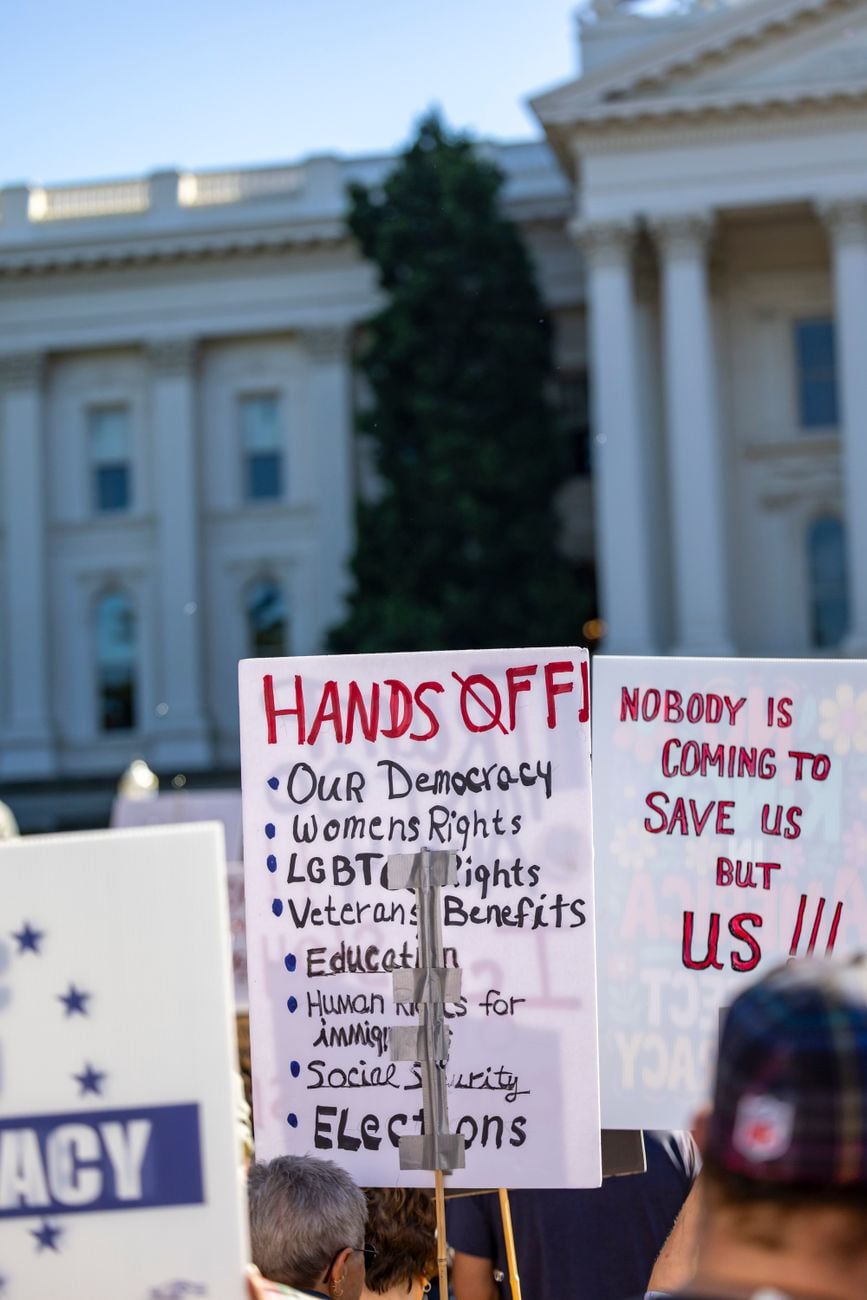 HANDS OFF!
• OUR Democracy
• Womens Rights
• LGBT Rights
• Veterans Benefits
• Education
• Human Rights for
immig
• Social Security
• ELections
NOBODY IS
COMING TO
SAVE US
BUT
US !!!
ACY